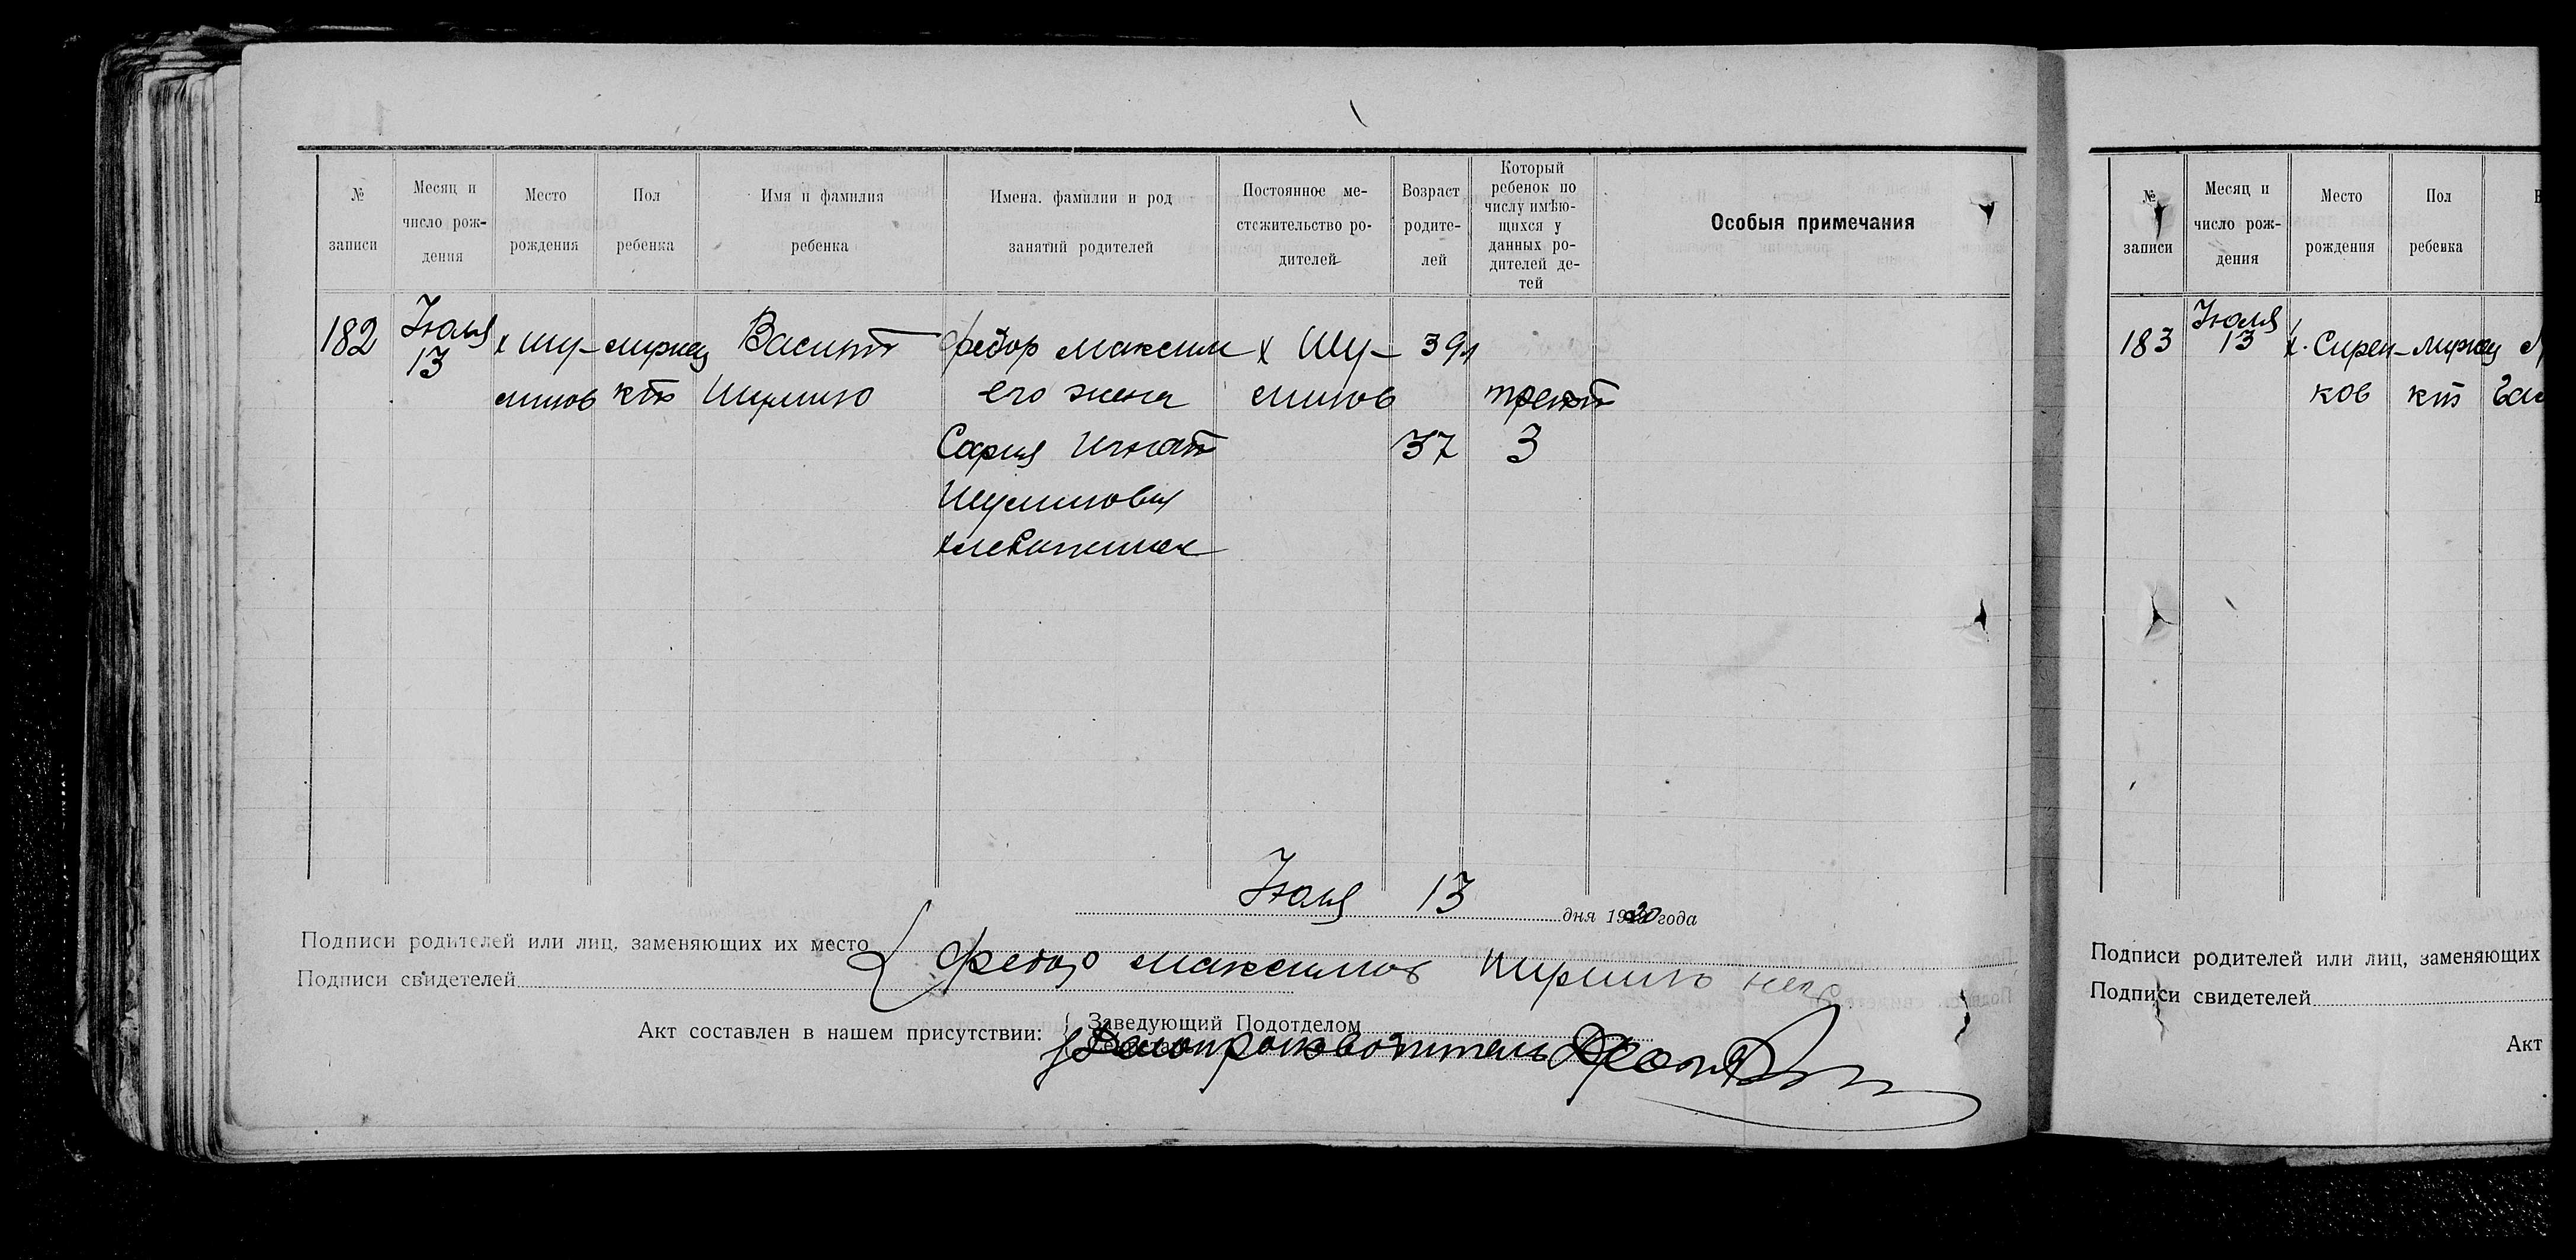 № записи
Месяц и число рождения
Место рождения
Пол ребенка
Имя и фамилия ребенка
Имена. фамилии и род занятий родителей
Постоянное местожительство родителей
Возраст родителей
Который ребенок по числу имѣющихся у данных родителей детей
Особыя примечания
182
Июля
13
х Шу-
милов
Федор Максим
его жена
София Игнат
Шумиловы
хлебопашец
х Шу-
милов
39
37
3
Июля 13 дня 1920 года
Подписи родителей или лиц, заменяющих их место Федор Максимов
Подписи свидетелей
Акт составлен в нашем присутствии:
Заведующий Подотделом
Делопроизводитель
№ записи
Месяц и число рождения
Место рождения
Пол ребенка
183
Июля
13
х. Сирен-
ков
Подписи родителей или лиц, заменяющих
Подписи свидетелей
Акт